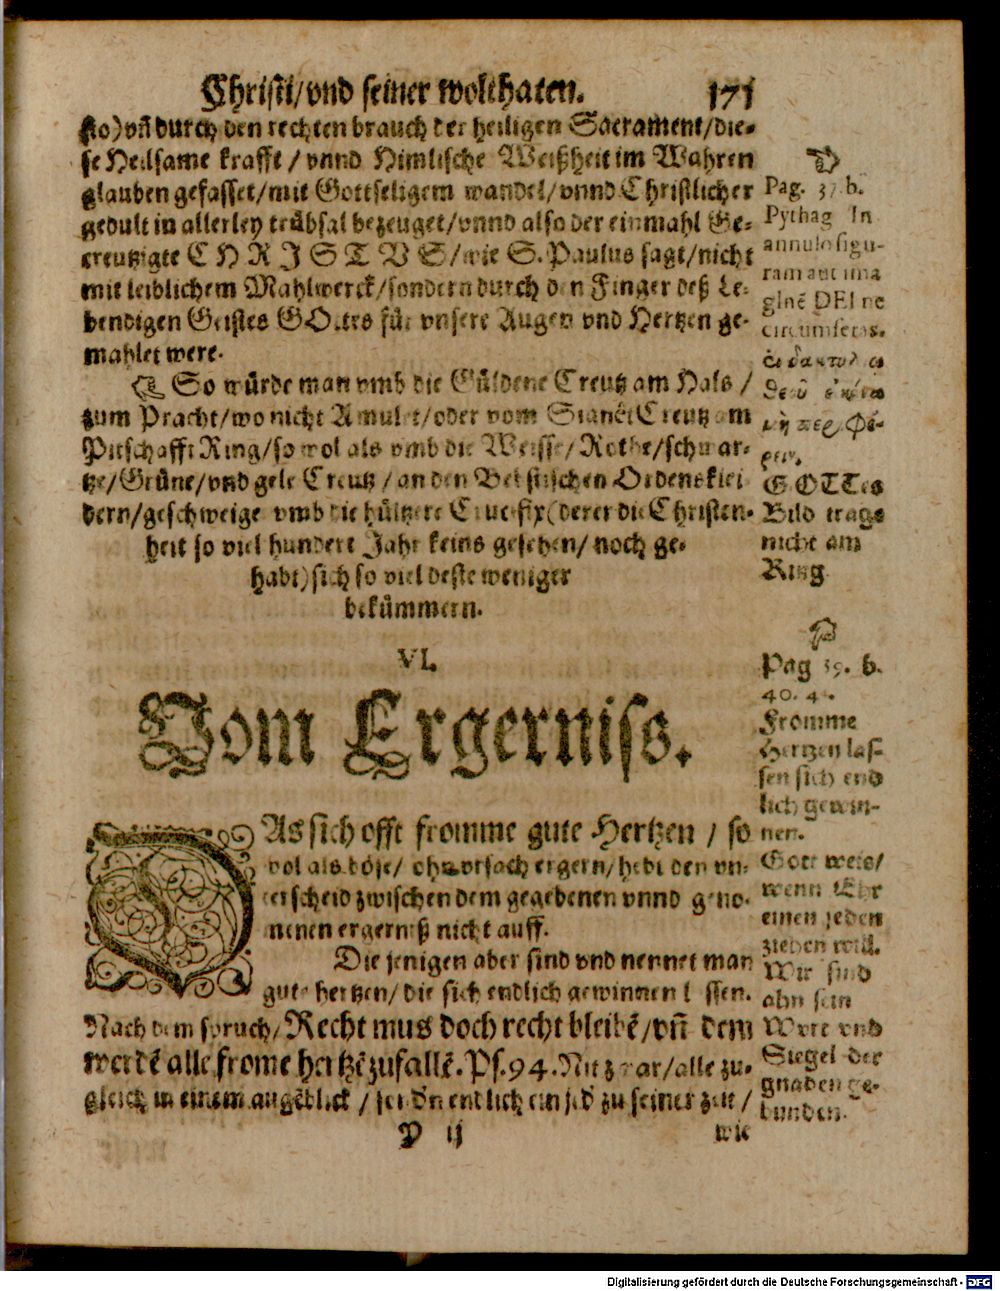 Christi/vnd seiner wolthaten. 171
sto) vñ durch den rechten brauch der heiligen Sacrament/die-
se Heilsame krafft / vnnd Himlische Weißheit im Wahren
glauben gefasset/mit Gottseligem wandel/vnnd Christlicher
gedult in allerley trübsal bezeuget/vnnd also der einmahl Ge-
creutzigte CHRISTVS/wie S. Paulus sagt/nicht
mit leiblichem Mahlwerck/sondern durch den Finger deß Le-
bendigen Geistes GOttes für vnsere Augen vnd Hertzen ge-
mahlet were.
So würde man vmb die Güldene Creutz am Hals /
zum Pracht/wo nicht Amulet/oder vom Creutz am
Pitschafft Ring/so wol als vmb die Weisse/Rothe/schwar-
tze/Grüne/vnd gele Creutz/an den Ordenskiei
dern/geschweige vmb die hültzere Crucifix(derer die Christen-
heit so viel hundert Jahr keins gesehen/noch ge-
habt)sich so viel deste weniger
bekümmern.
Pag. 37. b.
Pythag In
annulo figu-
ram aut ima
giné DEI ne
circumferas.
GOTTes
Bild trage
nicht am
Ring
VI.
Vom Ergerniss.
DAs sich offt fromme gute Hertzen / so
wol als böse/ ohn vrsach ergern/hebt den vn-
terscheid zwischen dem gegebenen vnnd geno-
menen ergerniß nicht auff.
Die jenigen aber sind vnd nennet man
gute hertzen/ die sich endlich gewinnen lassen.
Nach dem spruch/Recht mus doch recht bleibē/vñ dem
werdē alle frome hertzē zufallē.Ps.94.Nit zwar/alle zu-
gleich in einem augēblick / sondn endlich ein jed zu seiner zeit /
P ij wie
Pag 39. b.
40. 4.
Fromme
Hertzen las-
sen sich end
lich gewin-
nen.
Gott weis/
wenn Ehr
einen jeden
ziehen will.
Wir sind
ahn sein
Wort vnd
Siegel der
gnaden ge-
bunden.
Digitalisierung gefördert durch die Deutsche Forschungsgemeinschaft - DFG